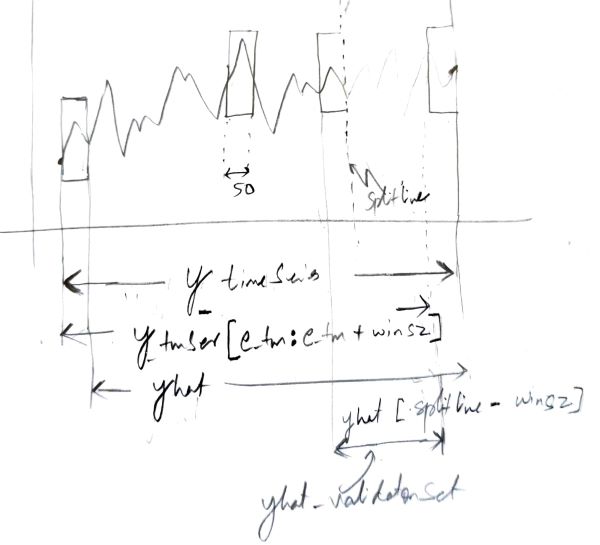 50
splitline
y_timeseries
y_tmser[e_tm:e_tm+winsz]
yhat
yhat[splitline - winsz]
yhat_validatonset